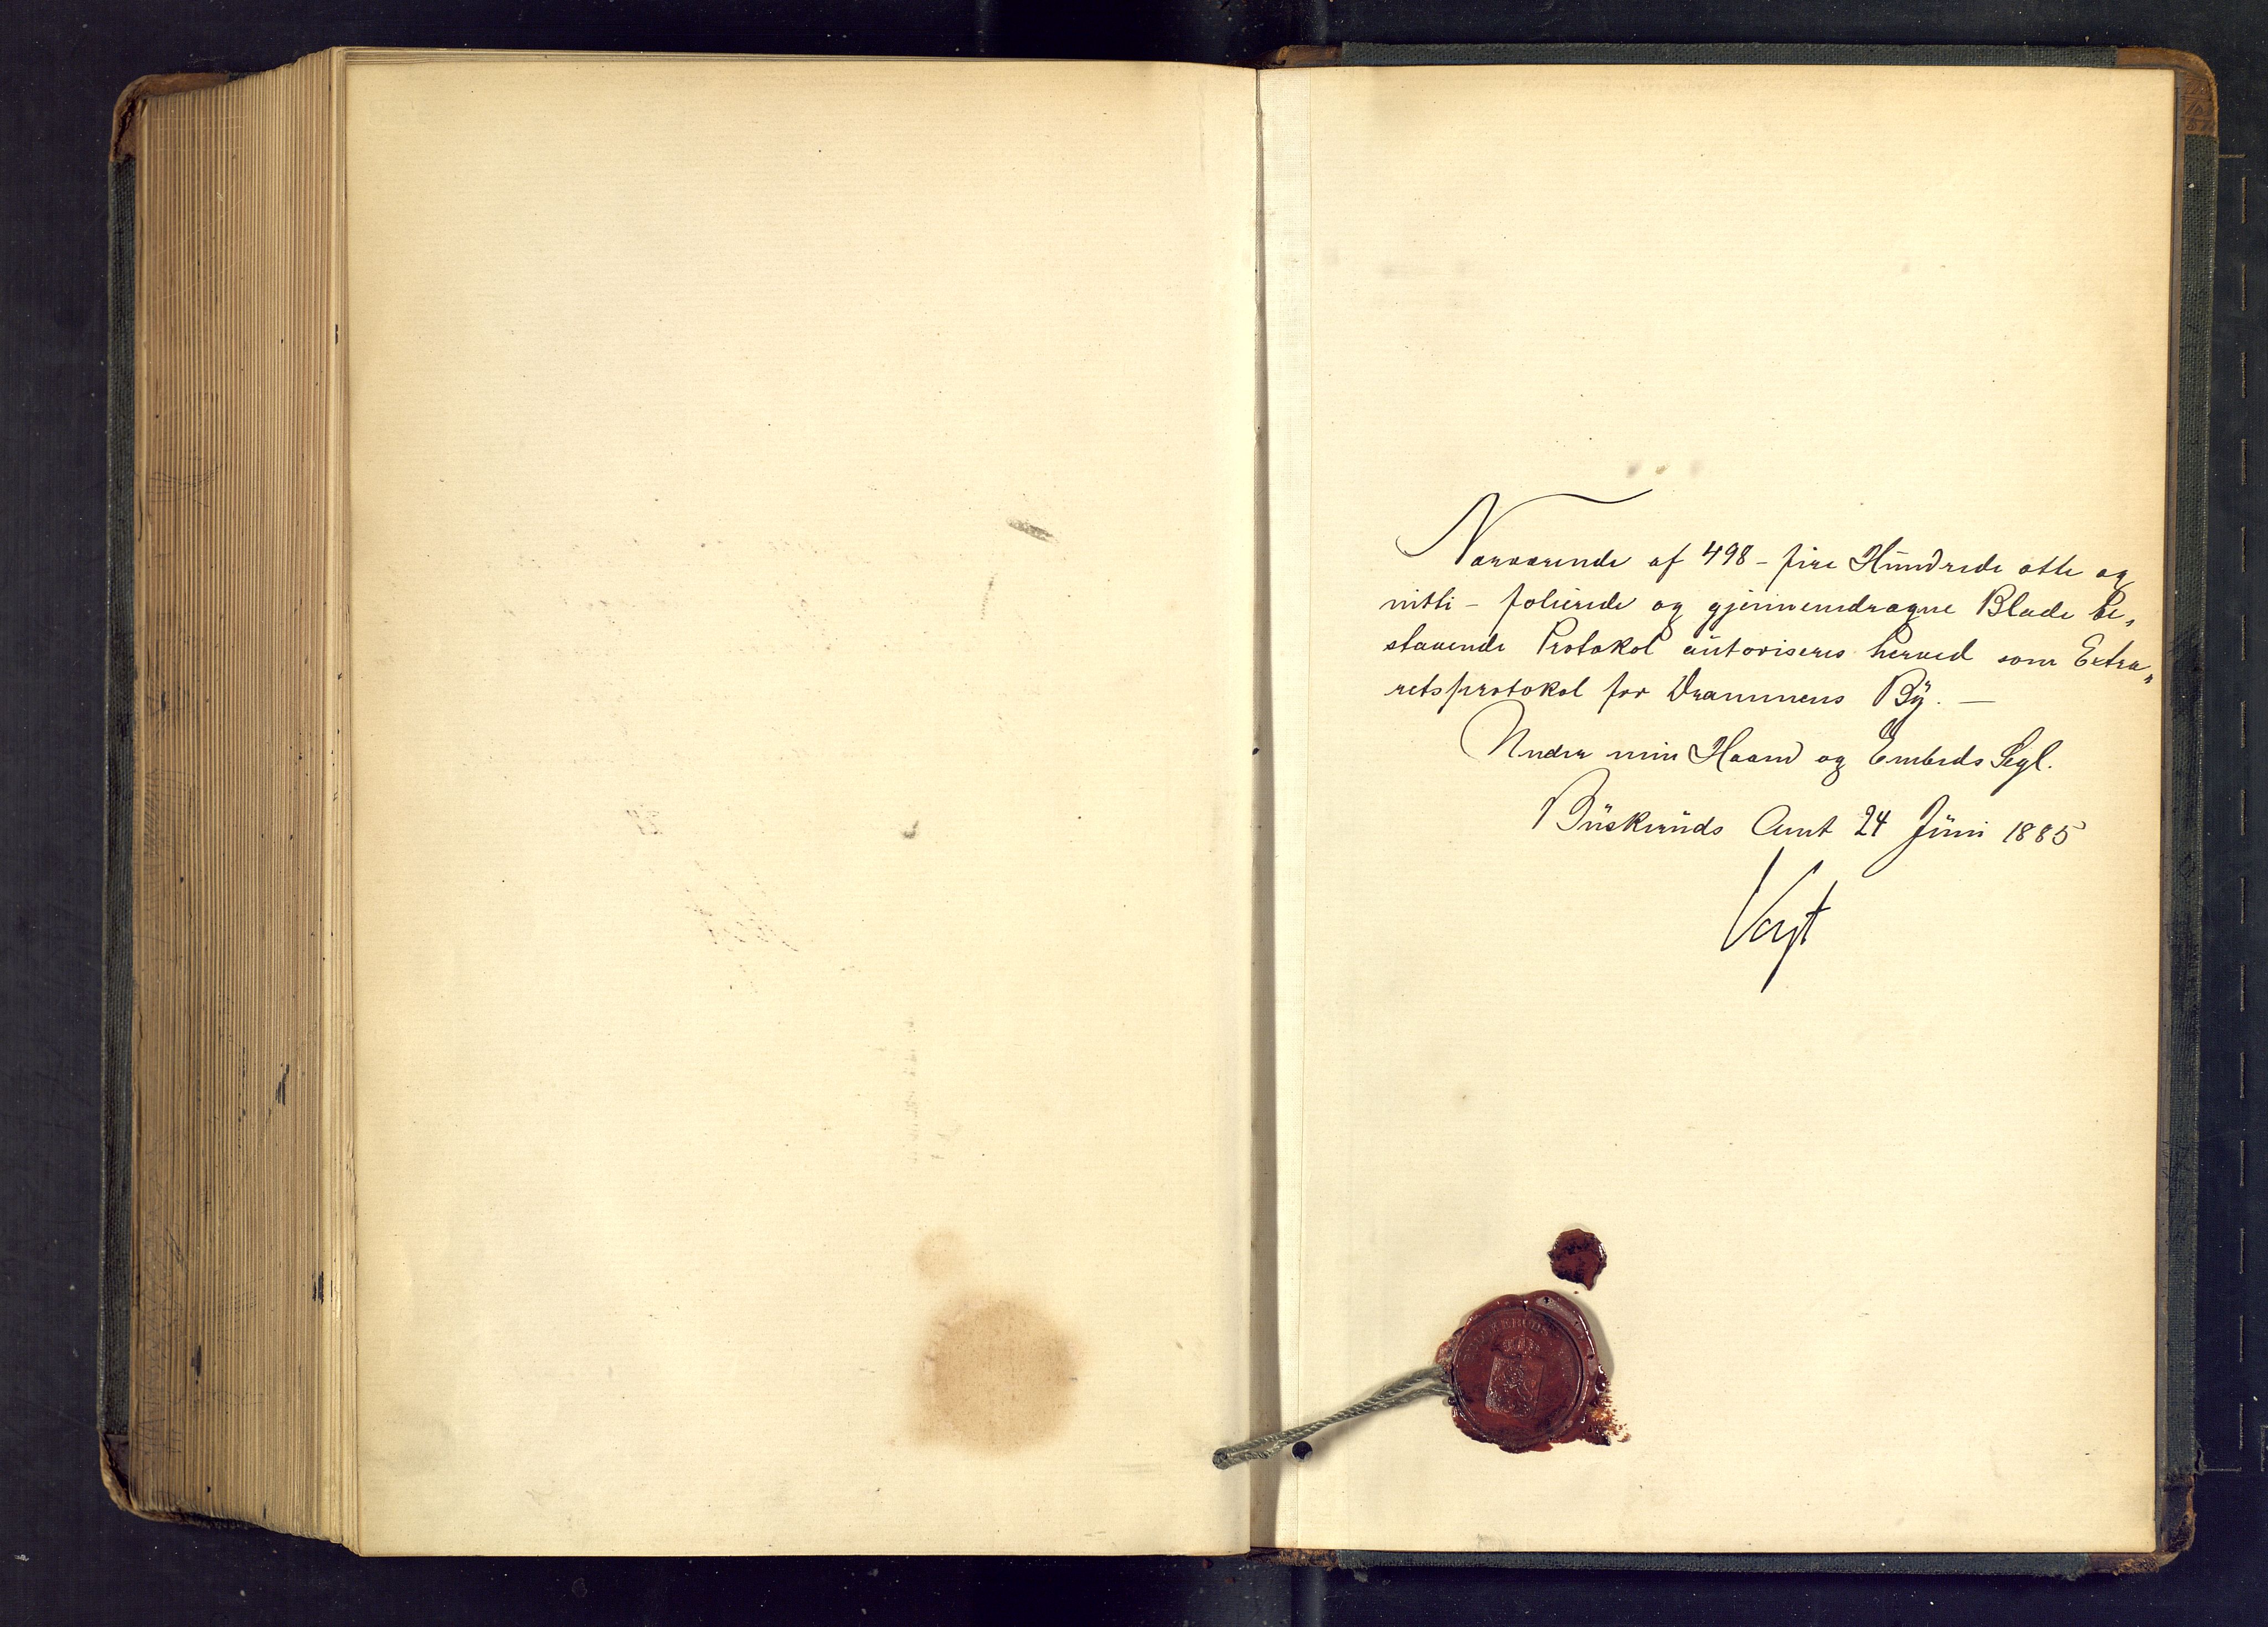 Nærværende af 498 - fire Hundrede otte og
nitti - folierede og gjennemdragne Blade be„
staaende Protokol autoriseres herved som Extra„
retsprotokol for Drammens By. —
Under min Haand og Embeds Segl.
Buskeruds Amt 24 Juni 1885
Vogt